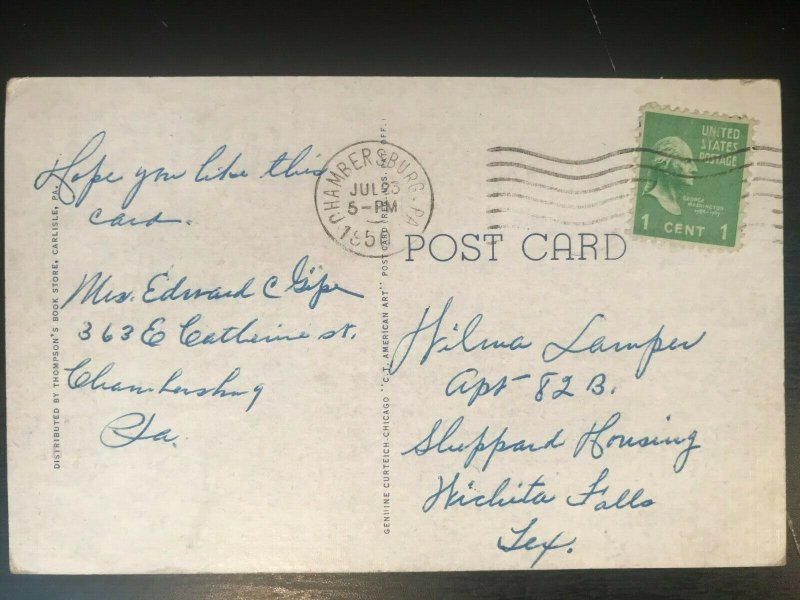 Hope you like this
card.
Mrs. Edward C Gipe
363 E Catherine st.
Chambersburg
Pa.
DISTRIBUTED BY THOMPSON'S BOOK STORE, CARLISLE, PA.
CHAMBERSBURG. PA
JUL 23
5-PM
GENUINE CURTEICH-CHICAGO "C.T. AMERICAN ART" POST CARD (REG. U.S. PAT. OFF.)
POST CARD
UNITED
STATES
POSTAGE
GEORGE
WASHINGTON
1 CENT 1
Wilma Lamper
Apt 82 B.
Sheppard Housing
Wichita Falls
Tex.